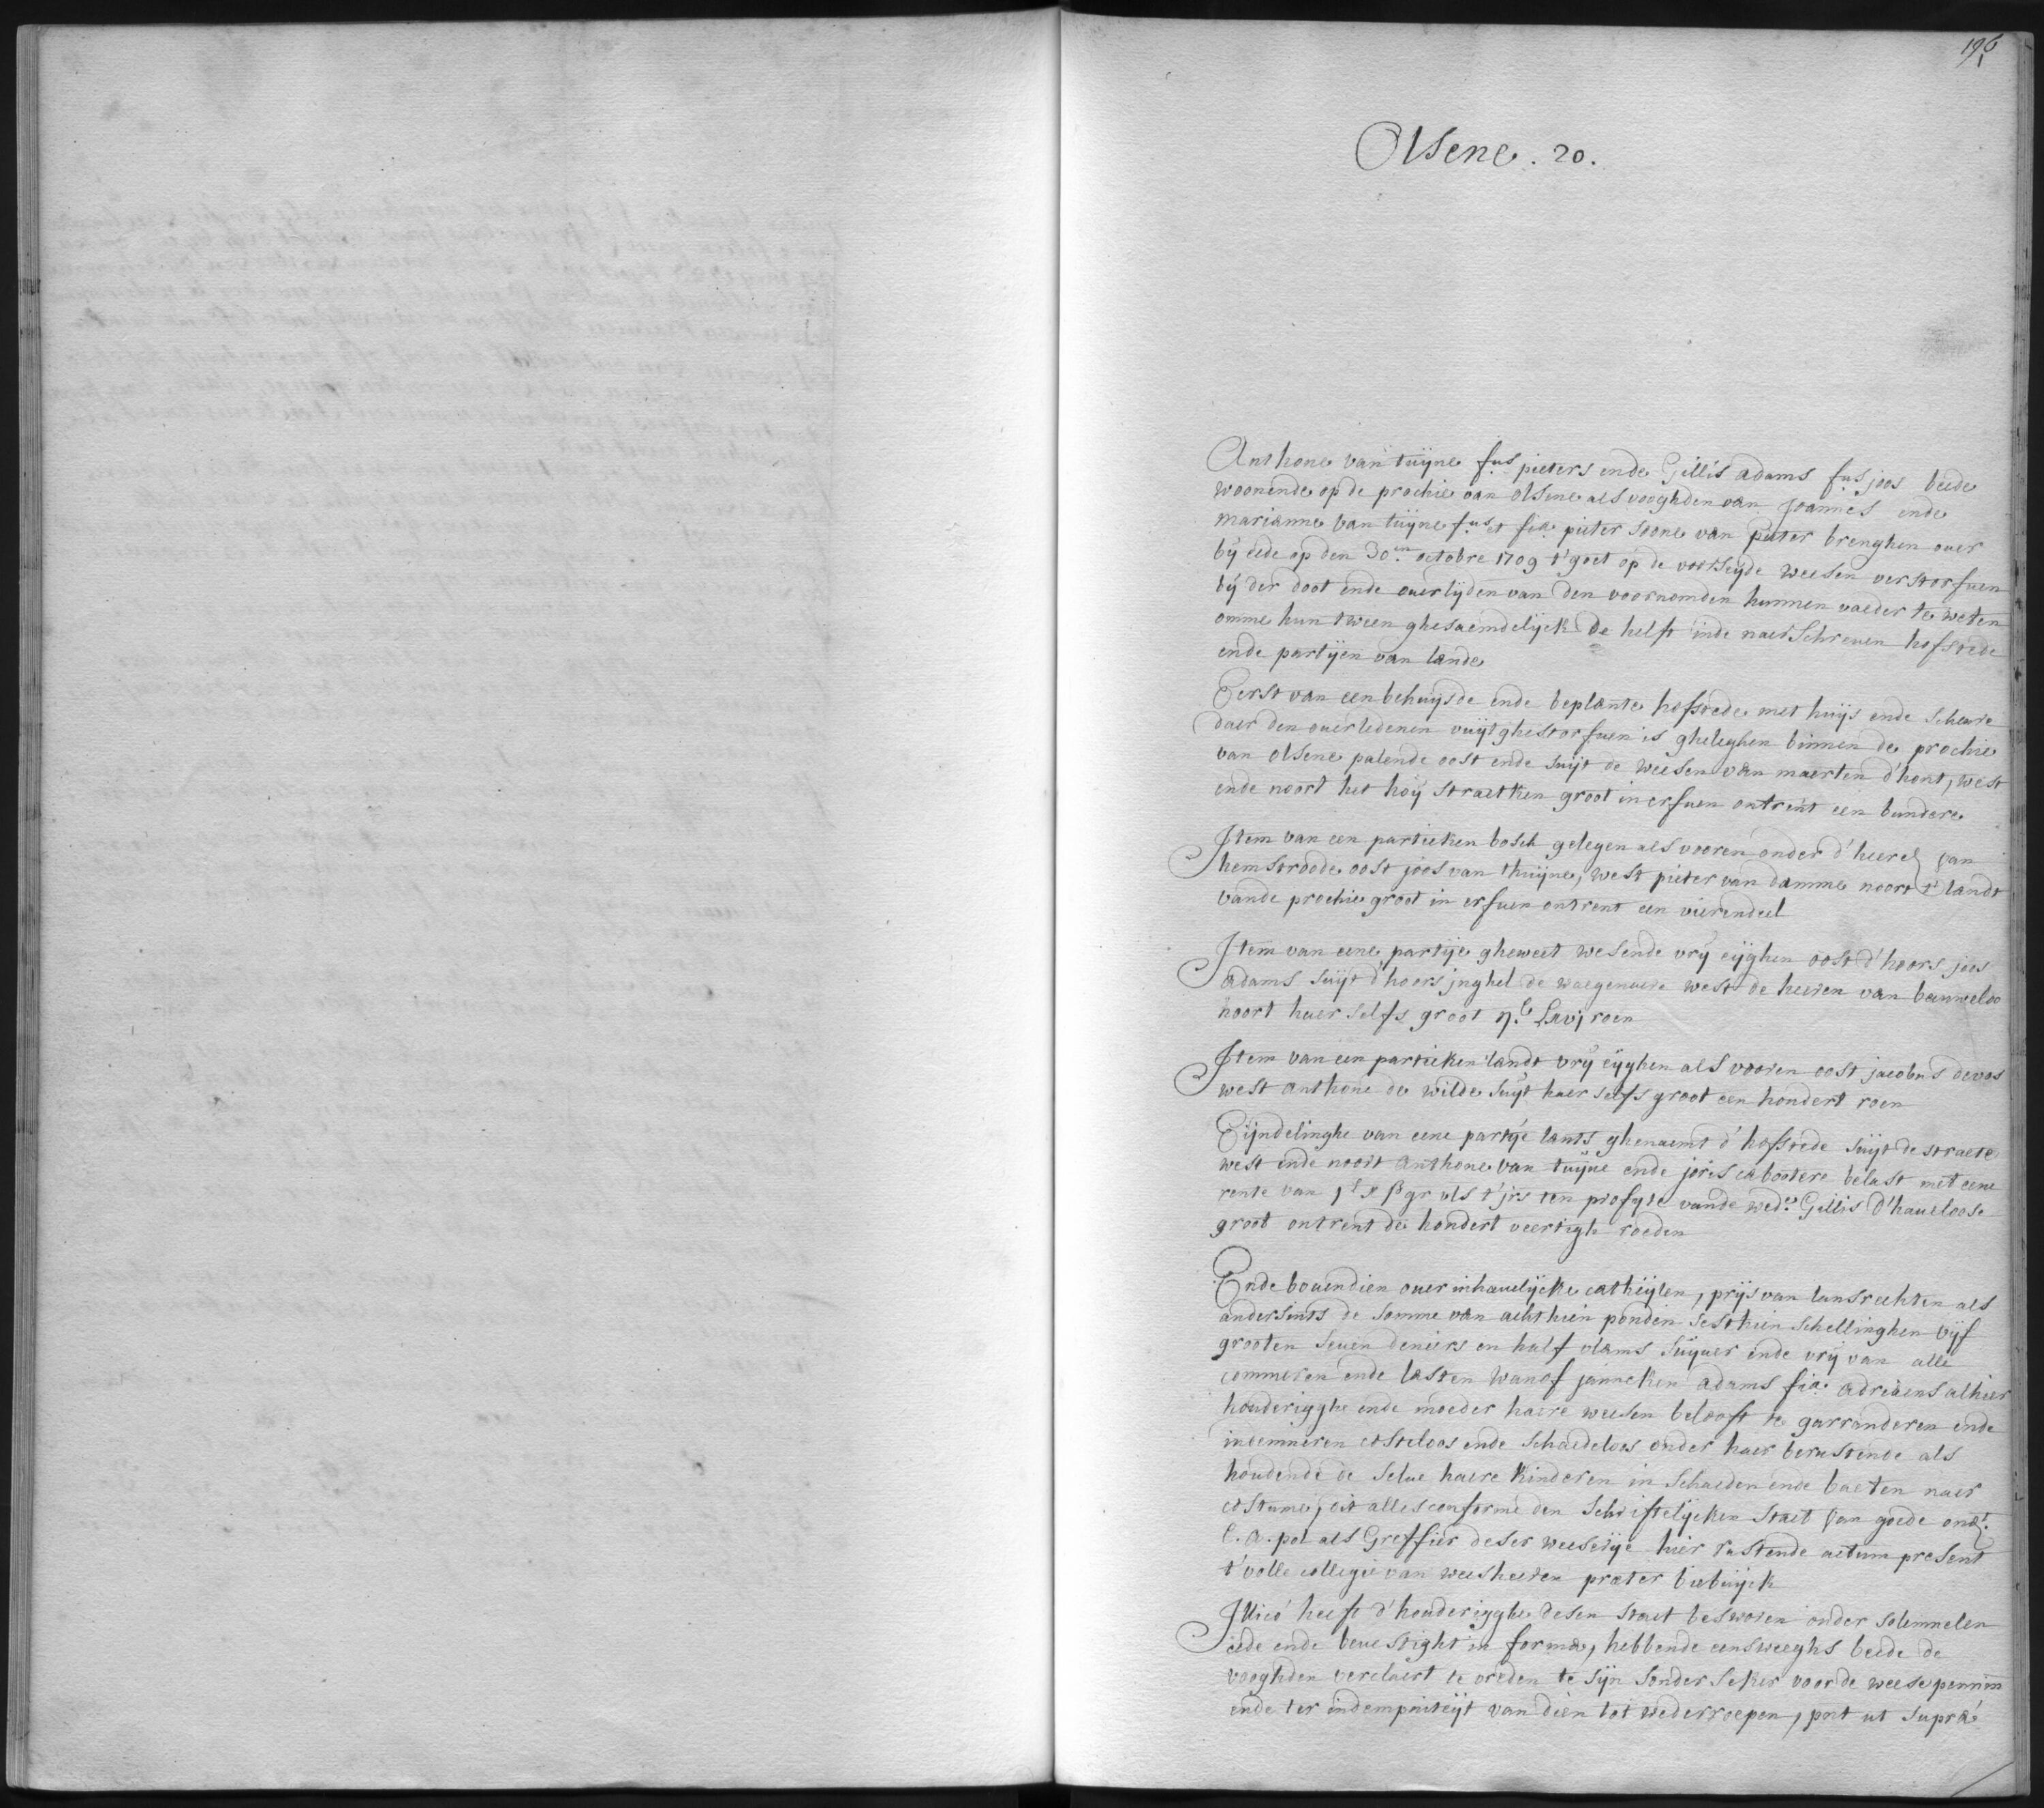 196
Olsene. 20.
Anthone van tuijne fus pieters ende Gillis adams fus joos beede
woonende op de prochie van olsene als vooghden van Joannes ende
marianne van tuijne fus et fia pieter soone van Pieter brenghen over
bij eede op den 30en octobre 1709 t'goet op de voorseyde weesen verstorfuen
bij der doot ende ouerlijden van den voornomden hunnen vaeder te weten
omme hun tween ghesaemdelijck de helft inde naerschreuen hofstede
ende partijen van lande
Eerst van een behuijsde ende beplante hofstede met huijs ende schure
daer den ouerledenen vuijtghestorfuen is gheleghen binnen de prochie
van olsene palende oost ende suijt de weesen van maerten d'hont, west
ende noort het hoij straetken groot in erfuen ontrent een bundere
Item van een partieken bosch gelegen als vooren onder d'heerel van
hemstroode oost joos van thuijne, west pieter van damme noort t'landt
vande prochie groot in erfuen ontrent een vierendeel
Item van eene partije gheweet wesende vrij eijghen oost d'hoors joos
adams suijt d'hoors jnghel de waegenaere west de heeren van bauweloo
noort haer selfs groot roen
Item van een partieken landt vrij eijghen als vooren oost jacobus devos
west anthone de wilde suijt haer selfs groot een hondert roen
Eijndelinghe van eene partije lants ghenaemt d'hofstede suijt de straete
west ende noort anthone van tuijne ende joris cabootere belast met eene
rente van gr vls t'jrs ten profyte vande wede Gillis d'haueloose
groot ontrent de hondert veertigh roeden
Ende bouendien ouer inhauelijcke catheijlen, prijs van lansrechten als
andersints de somme van achthien ponden sesthien schellinghen vijf
grooten seuen deniers en half vlams suijuer ende vrij van alle
commeren ende lasten wanof janneken adams fia adriaens alhier
houderigghe ende moeder haere weesen belooft te garranderen ende
indemneren costeloos ende schaedeloos onder haer berustende als
houdende de selue haere kinderen in schaeden ende baeten naer
costume, dit alles conforme den schriftelijcken staet van goede ondt
C. A. pol als Greffier deser weeserije hier rustende actum present
t'volle collegie van weesheeren præter biebuijck
Illico heeft d'houderigghe desen staet besworen onder solemnelen
eede ende beuestight in forma, hebbende eensweeghs beede de
vooghden verclaert te vreden te sijn sonder seker voor de weesepennin
ende ter indempniteijt van dien tot wederroepen, pnt ut supra